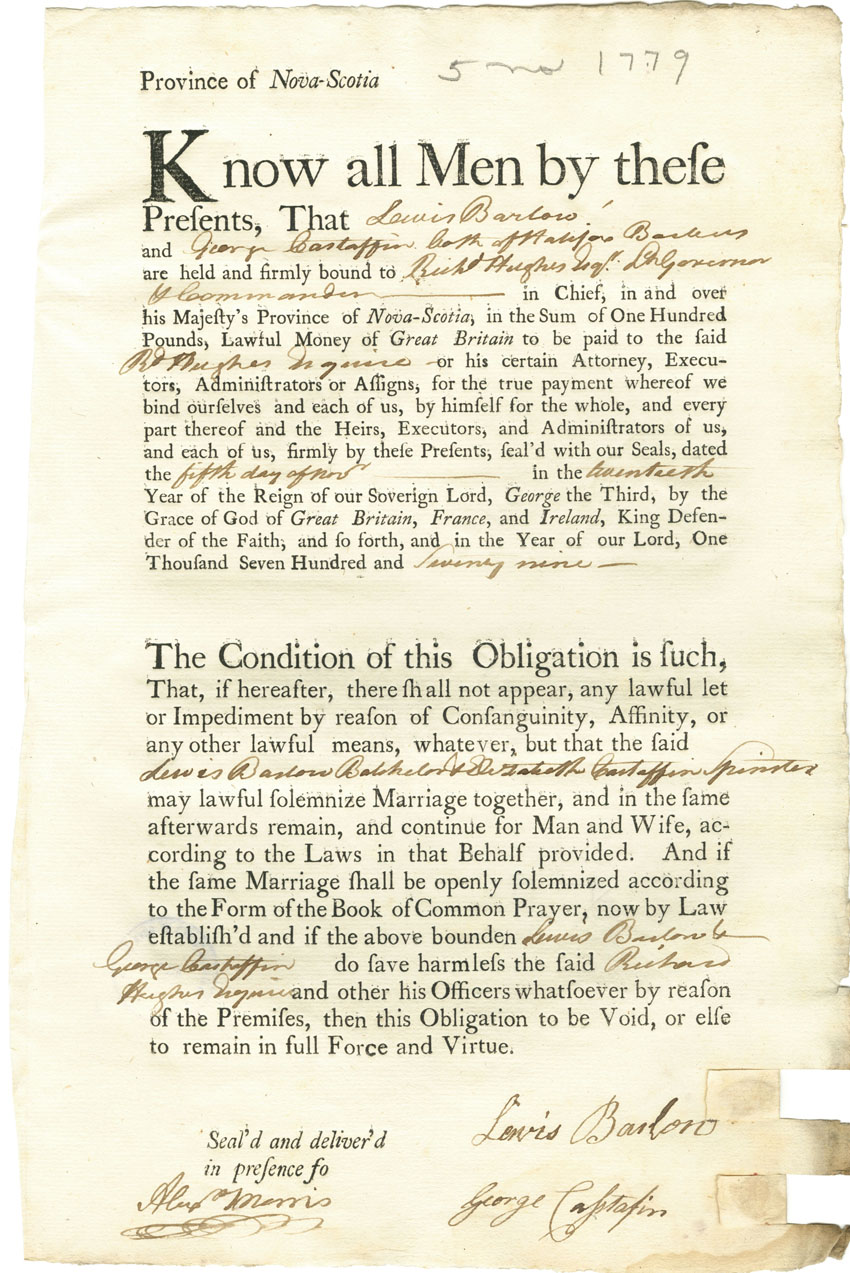 5 no 1779
Province of Nova-Scotia
Know all Men by theſe
Preſents, That Lewis Barlow
and George Castaffin both of Halifax
are held and firmly bound to Richd Hughes Esqr. Lt Governor
& Commander in Chief, in and over
his Majeſty's Province of Nova-Scotia, in the Sum of One Hundred
Pounds, Lawful Money of Great Britain to be paid to the ſaid
Rd Hughes Esquire or his certain Attorney, Execu-
tors, Adminiſtrators or Aſſigns, for the true payment whereof we
bind ourſelves and each of us, by himſelf for the whole, and every
part thereof and the Heirs, Executors, and Adminiſtrators of us,
and each of us, firmly by theſe Preſents, ſeal'd with our Seals, dated
the fifth day of novr in the twentieth
Year of the Reign of our Soverign Lord, George the Third, by the
Grace of God of Great Britain, France, and Ireland, King Defen-
der of the Faith, and ſo forth, and in the Year of our Lord, One
Thouſand Seven Hundred and Seventy nine
The Condition of this Obligation is ſuch,
That, if hereafter, there ſhall not appear, any lawful let
or Impediment by reaſon of Conſanguinity, Affinity, or
any other lawful means, whatever, but that the ſaid
Lewis Barlow Batchelor & Elizabeth Castaffin Spinster
may lawful ſolemnize Marriage together, and in the ſame
afterwards remain, and continue for Man and Wife, ac-
cording to the Laws in that Behalf provided. And if
the ſame Marriage ſhall be openly ſolemnized according
to the Form of the Book of Common Prayer, now by Law
eſtabliſh'd and if the above bounden Lewis Barlow &
George Castaffin do ſave harmleſs the ſaid Richard
Hughes Esquire and other his Officers whatſoever by reaſon
of the Premiſes, then this Obligation to be Void, or elſe
to remain in full Force and Virtue.
Seal'd and deliver'd
in preſence fo
Lewis Barlow
Alexr Morris
George Caſstafin